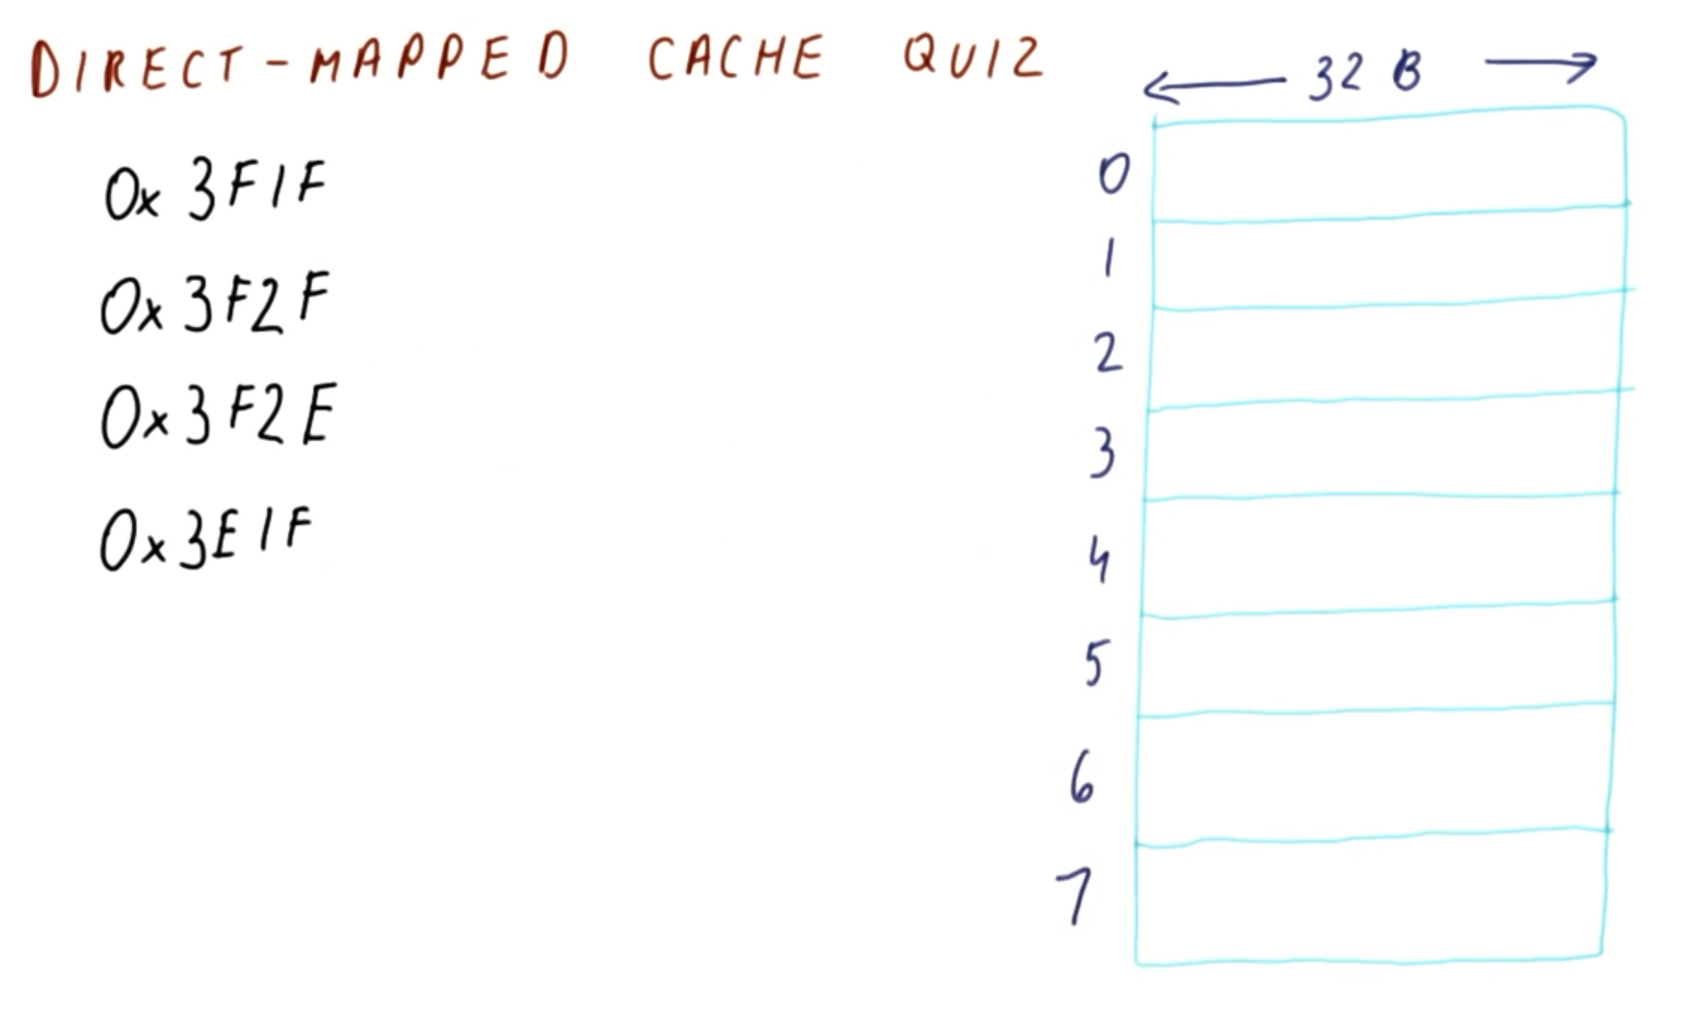 DIRECT-MAPPED CACHE QUIZ
32 B
0x3F1F
0x3F2F
0x3F2E
0x3E1F
0
1
2
3
4
5
6
7